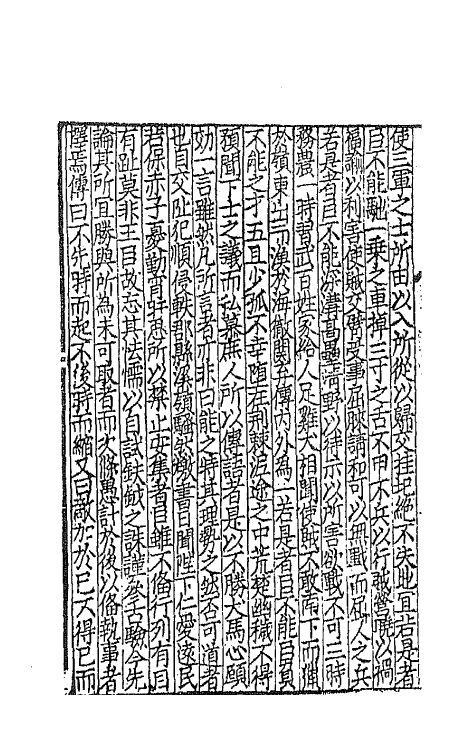 使三軍之士所由以入所從以歸交挂圮絶不失地宜若是者
臣不能馳一乗之車掉三寸之舌不甲不兵以行誠營雖以禍
福諭以利害使賊交臂受事屈膝請和可以無戰而屈人之兵
若是者臣不能深溝髙壘清野以待示以所害欲戰不可三時
務農一時習武百姓家給人足雞犬相聞使賊不敢下而
於嶺東出而漢於海傳内外為一若是者臣不能臣負
不能之才五且少孤不幸堕在荆棘泥途之中荒楚幽穢不得
預聞下士之議而私慕庶人所以傳語者是以不勝犬馬心願
効一言雖然凡所言者亦非曰能之特其理勢之然否可道者
也自交阯犯順侵軼郡縣深嶺騷然激書日聞陛下仁愛逺民
若保赤子憂勤宵旰思所以禁止安集者臣雖不備行列有目
有趾莫非王臣故忘其怯懦以自試鈇鉞之誅謹參古驗今先
論其所宜勝與所為未可取者而次條愚計於後以偹執事者
擇焉傳曰不先時而起不後時而縮又曰敵加於已不得已而